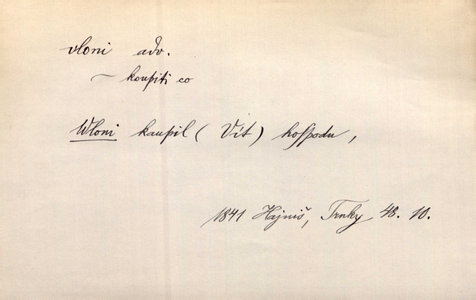 vloni adv.
~ koupiti co
Wloni kaupil (Vít) hospodu,
1841 Hajniš, Trnky 48. 10.